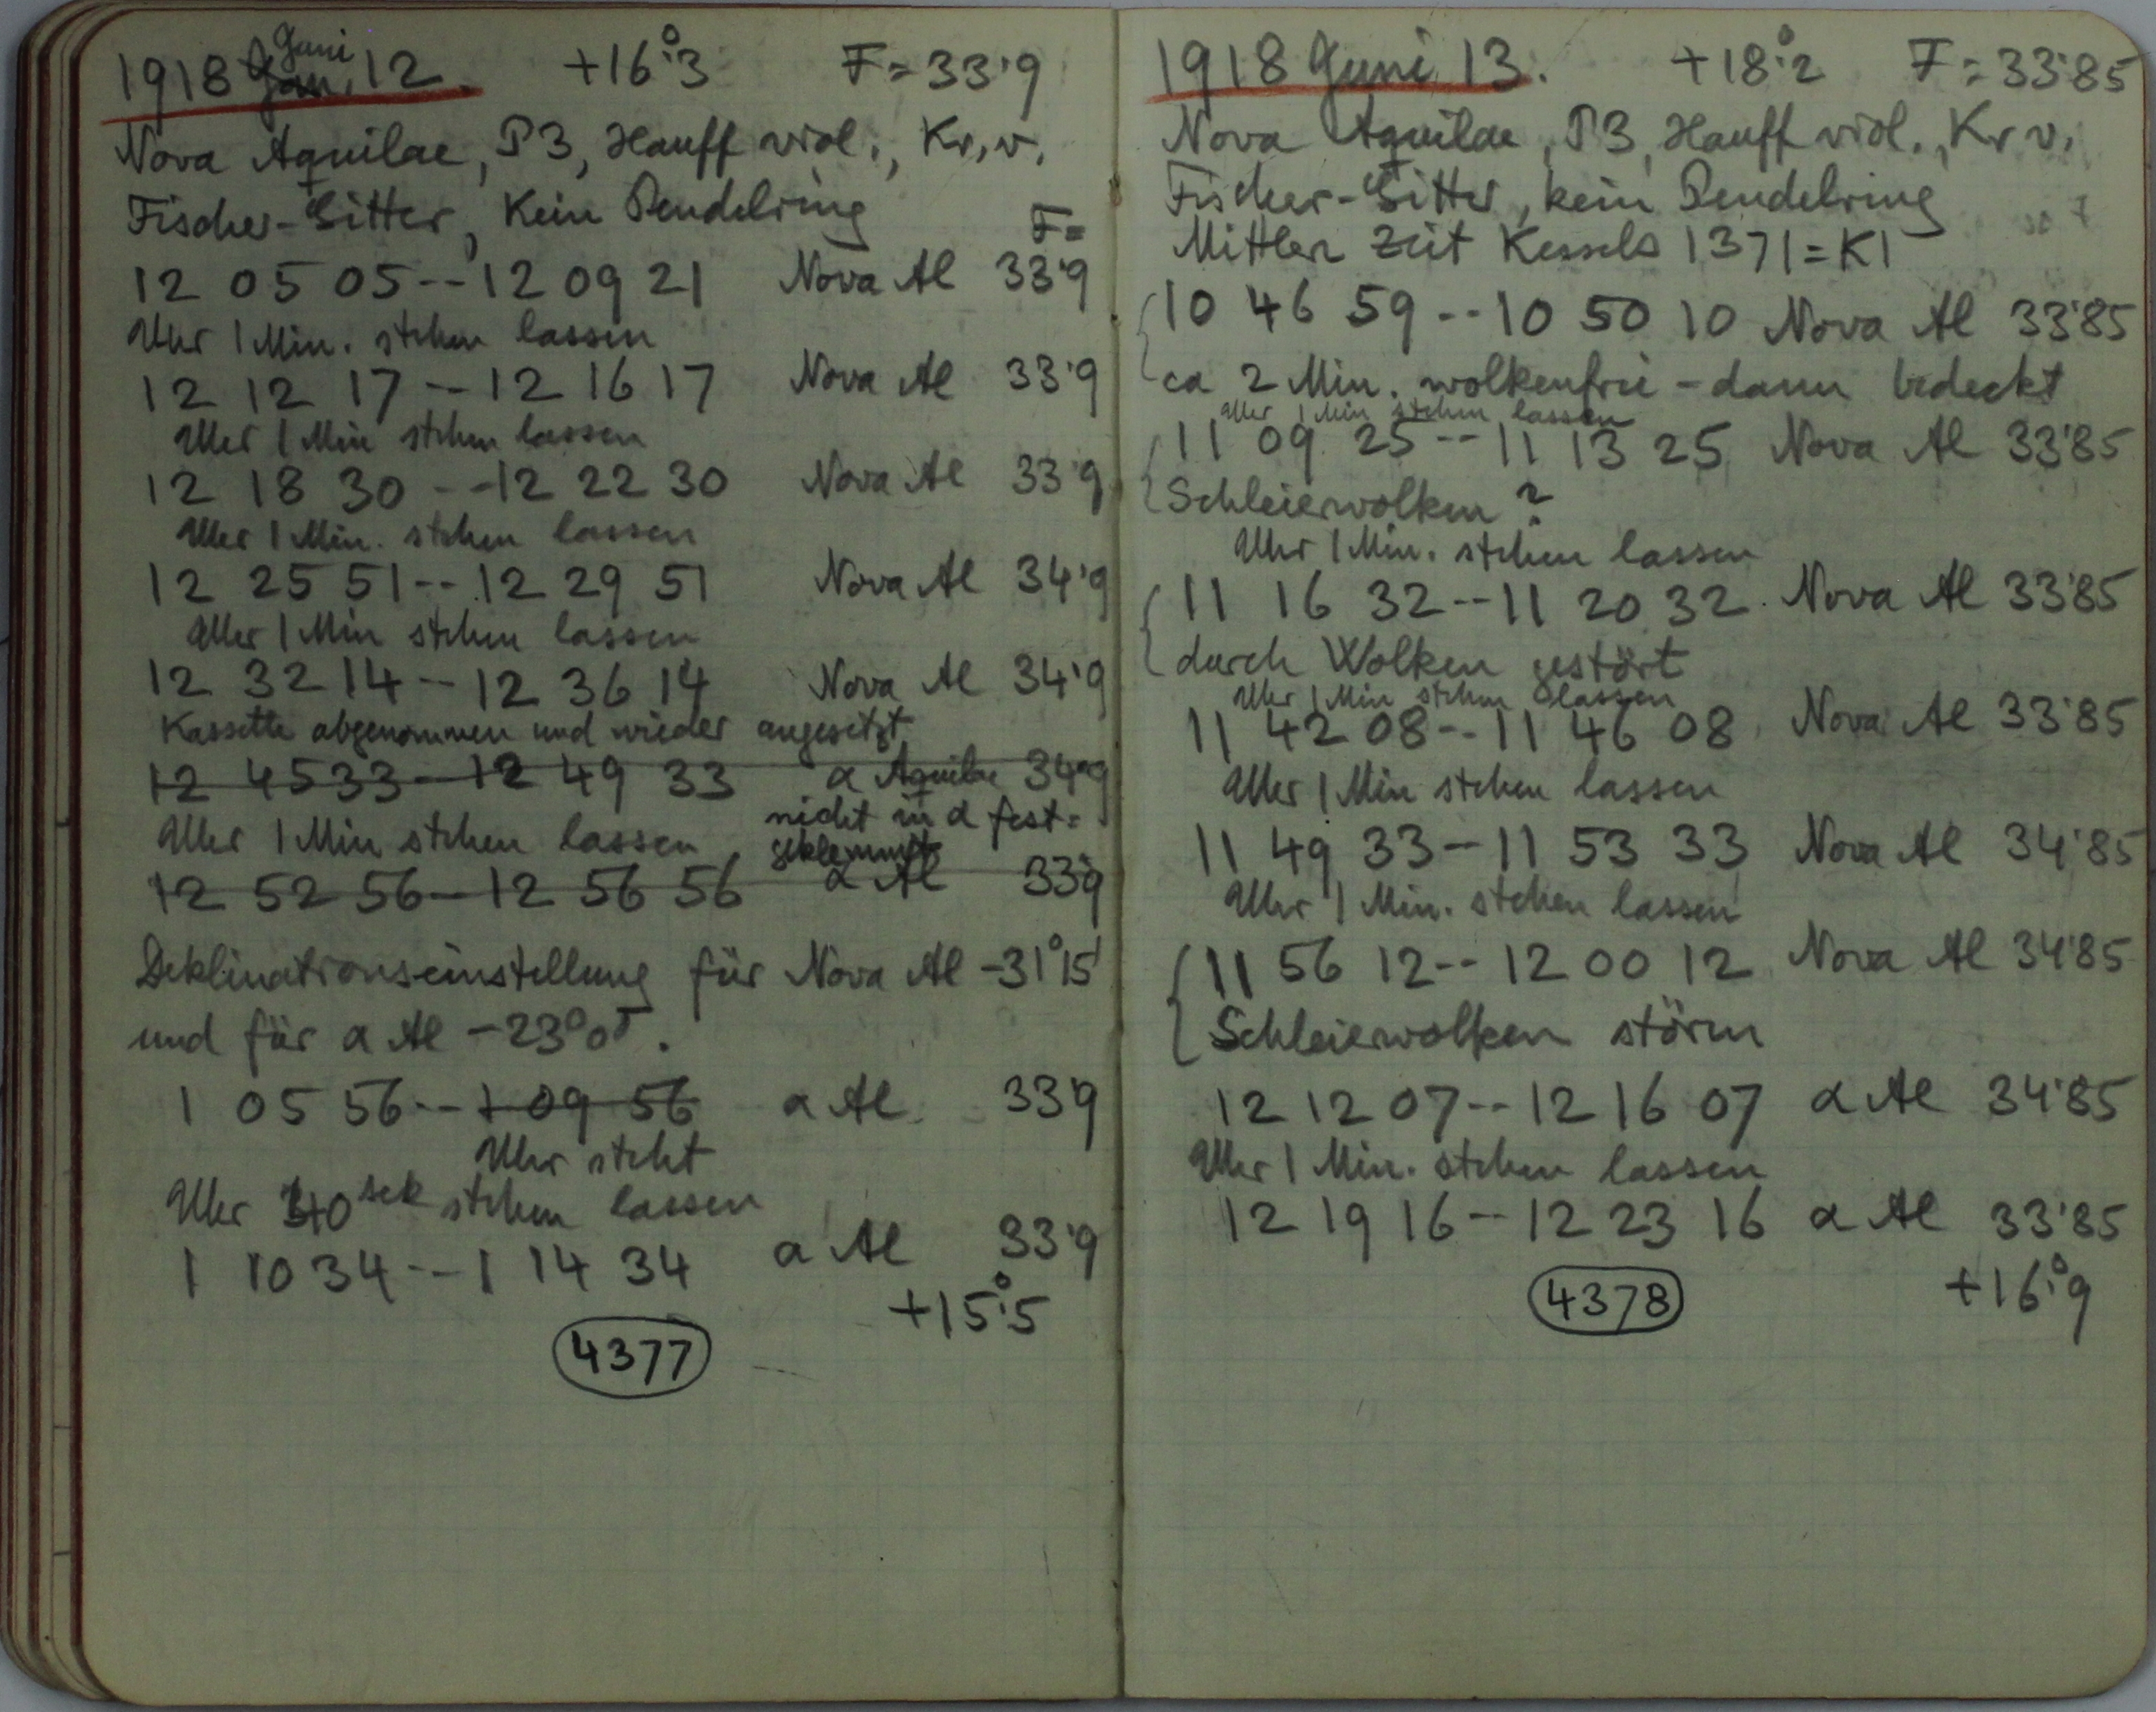 1918 Jan. Juni 12. +16°.3 F = 33.9
Nova Aquilae, P3, Hauff viol., Kr, v.
Fischer-Gitter, Kein Pendelring
F=
12 05 05--12 09 21 Nova Al 33.9
Uhr 1 Min. stehen lassen
12 12 17--12 16 17 Nova Al 33.9
Uhr 1 Min stehen lassen
12 18 30--12 22 30 Nova Al 33.9
Uhr 1 Min. stehen lassen
12 25 51--12 29 51 Nova Al 34.9
Uhr 1 Min stehen lassen
12 32 14--12 36 14 Nova Al 34.9
Kassette abgenommen und wieder angesetzt
12 45 33--12 49 33 α Aquilae 34.9
nicht in d fest=
Uhr 1 Min stehen lassen, geklemmt
12 52 56--12 56 56 α Al 33.9
Deklinationseinstellung für Nova Al -31°15'
und für α Al -23°05'.
1 05 56--1 09 56 α Al 33.9
Uhr steht
Uhr 40 sek stehen lassen
1 10 34--1 14 34 α Al 33.9
+15°.5
4377
1918 Juni 13. +18°.2 F = 33.85
Nova Aquilae, P3, Hauff viol., Kr v.
Fischer-Gitter, kein Pendelring
Mittlere Zeit Kessels 1371 = K1
10 46 59--10 50 10 Nova Al 33.85
ca 2 Min. wolkenfrei - dann bedeckt
Uhr 1 Min stehen lassen
11 09 25--11 13 25 Nova Al 33.85
Schleierwolken?
Uhr 1 Min. stehen lassen
11 16 32--11 20 32 Nova Al 33.85
durch Wolken gestört
Uhr 1 Min stehen lassen
11 42 08--11 46 08 Nova Al 33.85
Uhr 1 Min stehen lassen
11 49 33--11 53 33 Nova Al 34.85
Uhr 1 Min. stehen lassen
11 56 12--12 00 12 Nova Al 34.85
Schleierwolken stören
12 12 07--12 16 07 α Al 34.85
Uhr 1 Min. stehen lassen
12 19 16--12 23 16 α Al 33.85
+16°.9
4378